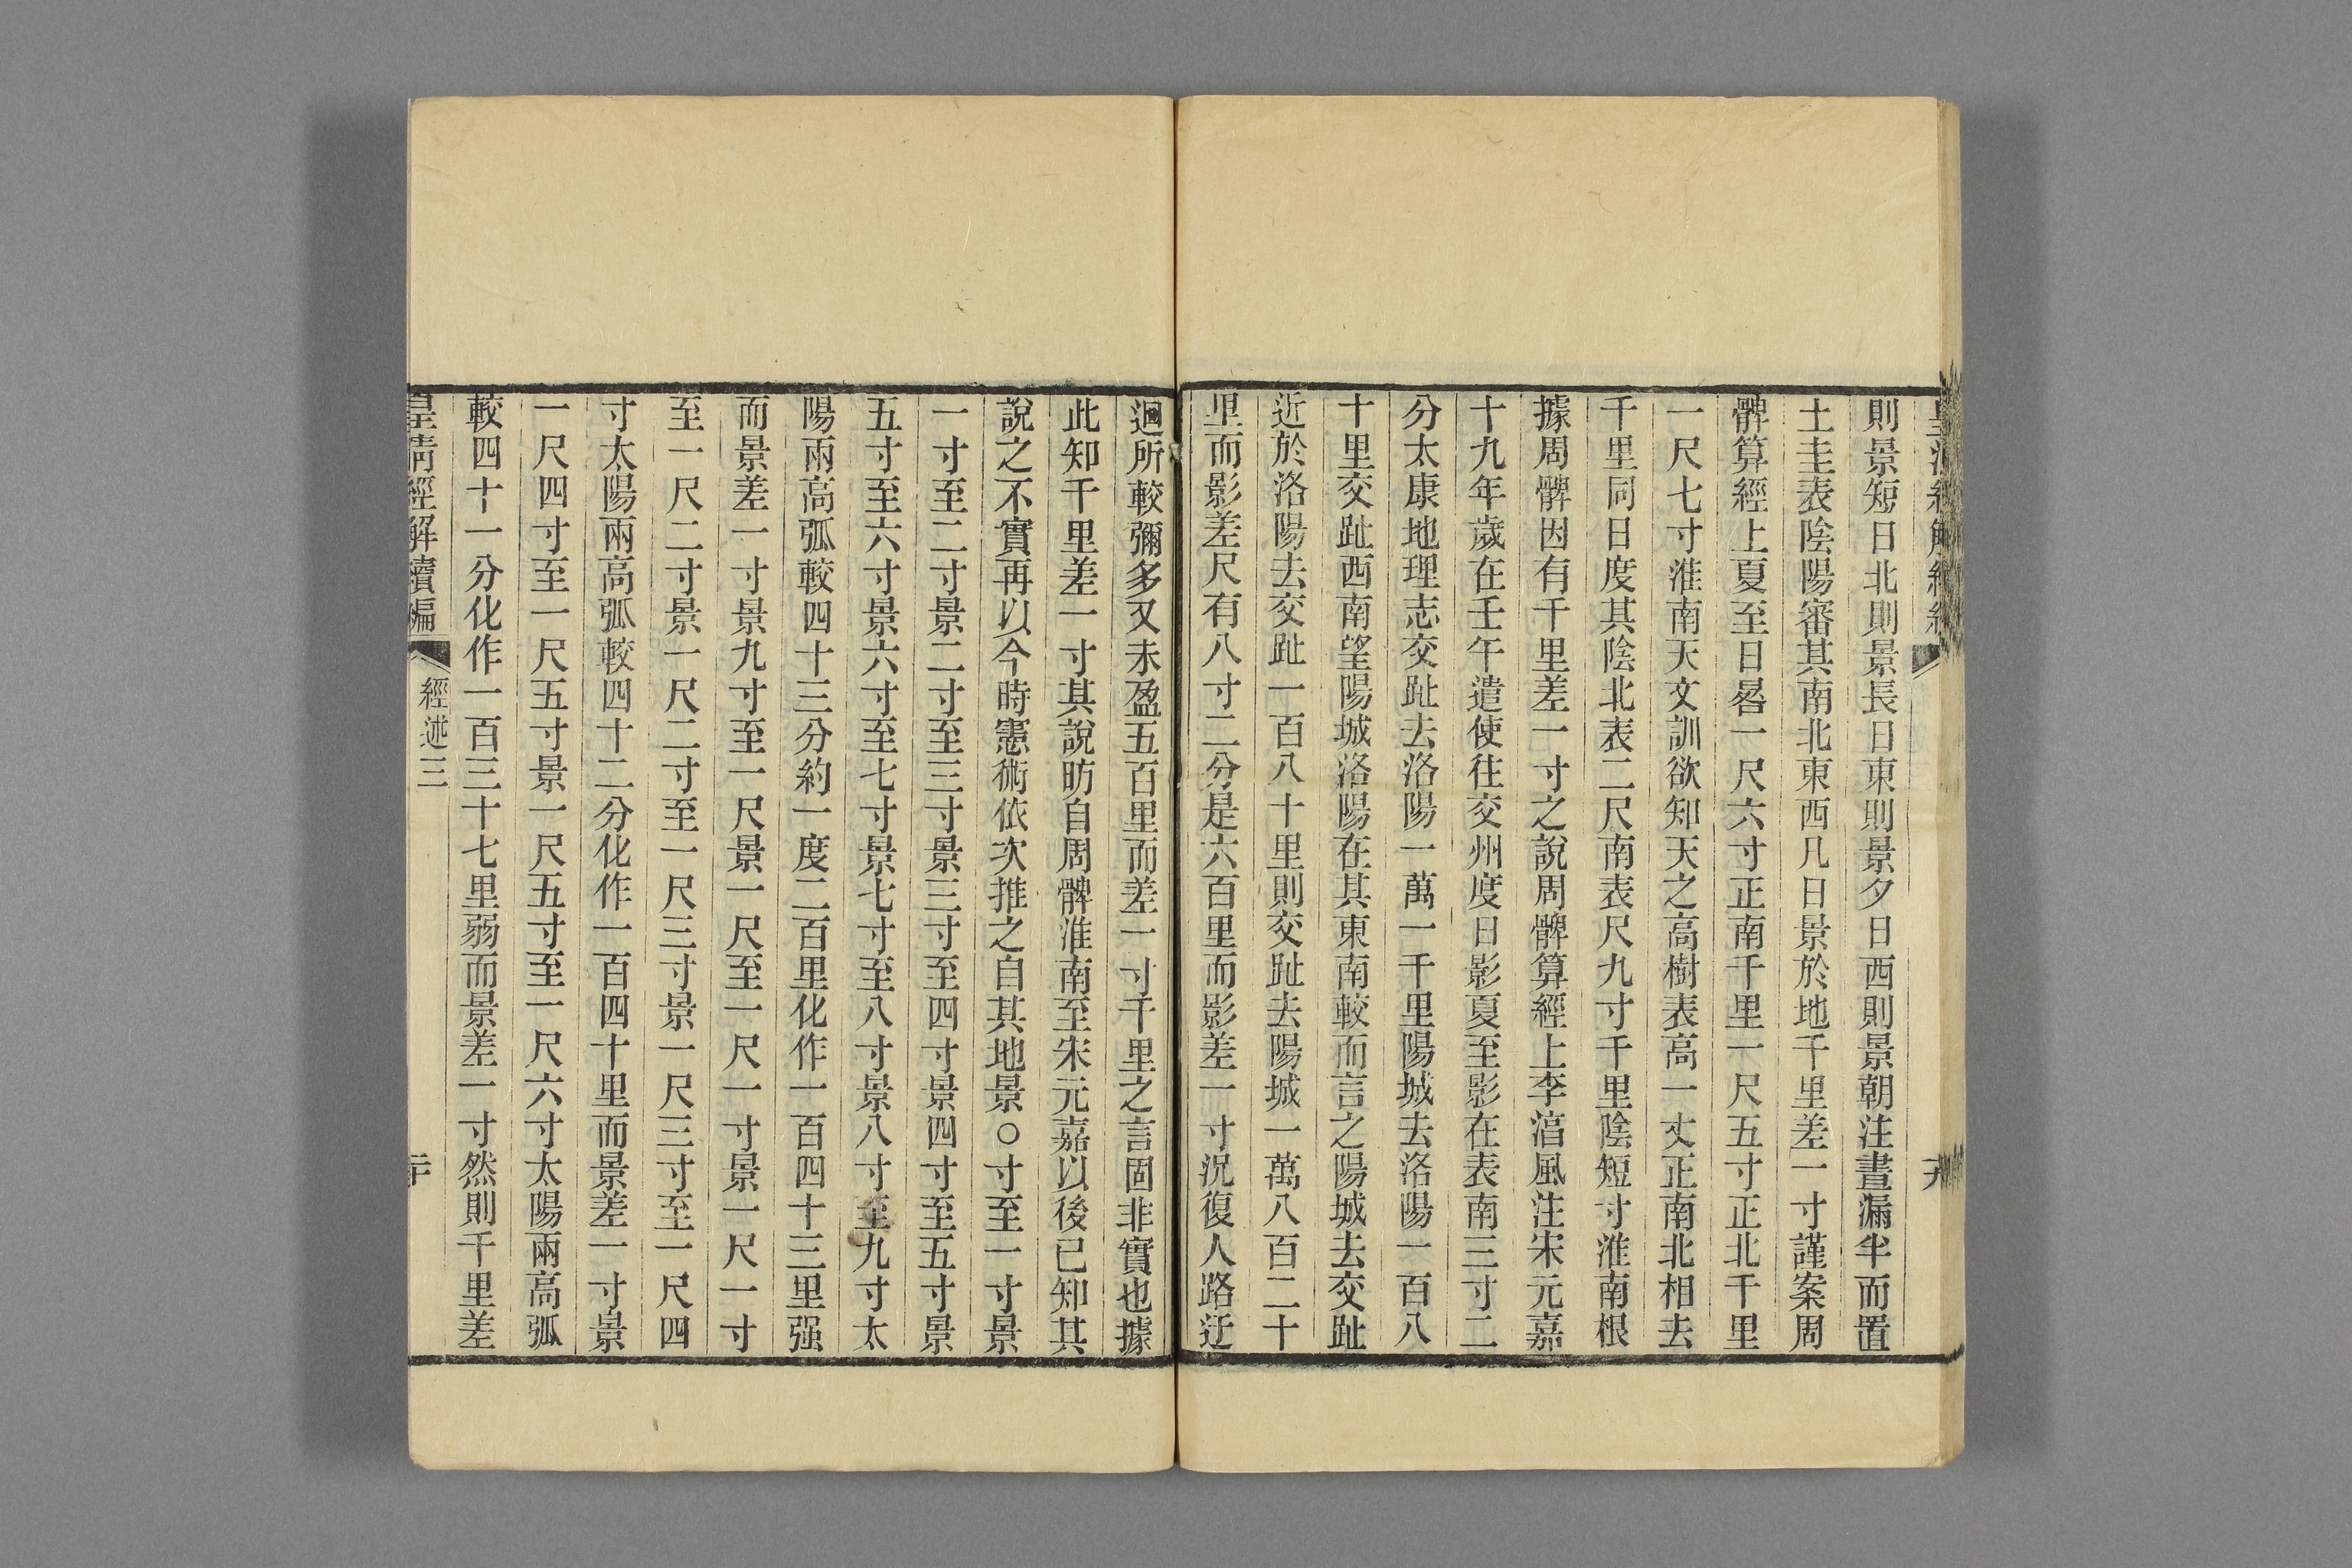 則景短日北則景長日東則景夕日西則景朝注晝漏半而置
土圭表陰陽審其南北東西凡日景於地千里差一寸謹案周
髀算經上夏至日晷一尺六寸正南千里一尺五寸正北千里
一尺七寸淮南天文訓欲知天之高樹表高一丈正南北相去
千里同日度其陰北表二尺南表尺九寸千里陰短寸淮南根
據周髀因有千里差一寸之說周髀算經上李淳風注宋元嘉
十九年歲在壬午遣使往交州度日影夏至影在表南三寸二
分太康地理志交趾去洛陽一萬一千里陽城去洛陽一百八
十里交趾西南望陽城洛陽在其東南較而言之陽城去交趾
近於洛陽去交趾一百八十里則交趾去陽城一萬八百二十
里而影差尺有八寸二分是六百里而影差一寸況復人路迂
迴所較彌多又未盈五百里而差一寸千里之言固非實也據
此知千里差一寸其說昉自周髀淮南至宋元嘉以後已知其
說之不實再以今時憲術依次推之自其地景○寸至一寸景
一寸至二寸景二寸至三寸景三寸至四寸景四寸至五寸景
五寸至六寸景六寸至七寸景七寸至八寸景八寸至九寸太
陽兩高弧較四十三分約一度二百里化作一百四十三里强
而景差一寸景九寸至一尺景一尺至一尺一寸景一尺一寸
至一尺二寸景一尺二寸至一尺三寸景一尺三寸至一尺四
寸太陽兩高弧較四十二分化作一百四十里而景差一寸景
一尺四寸至一尺五寸景一尺五寸至一尺六寸太陽兩高弧
較四十一分化作一百三十七里弱而景差一寸然則千里差
皇清經解續編 經述三 二十